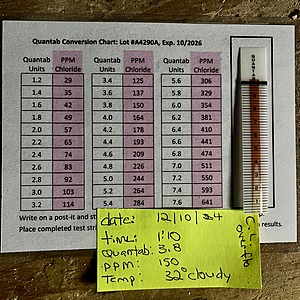 Quantab Conversion Chart: Lot #A4290A, Exp. 10/2026
Quantab Units PPM Chloride Quantab Units PPM Chloride Quantab Units PPM Chloride
1.2 29 3.4 125 5.6 306
1.4 36 3.6 137 5.8 329
1.6 42 3.8 150 6.0 354
1.8 49 4.0 164 6.2 381
2.0 57 4.2 178 6.4 410
2.2 65 4.4 193 6.6 441
2.4 74 4.6 209 6.8 474
2.6 83 4.8 226 7.0 511
2.8 92 5.0 244 7.2 550
3.0 103 5.2 264 7.4 593
3.2 114 5.4 284 7.6 641
QUANTAB
Write on a post-it and st
Place completed test stri
results.
date: 12/10/24
time: 1:10
Quantab: 3.8
PPM: 150
Temp: 32° cloudy